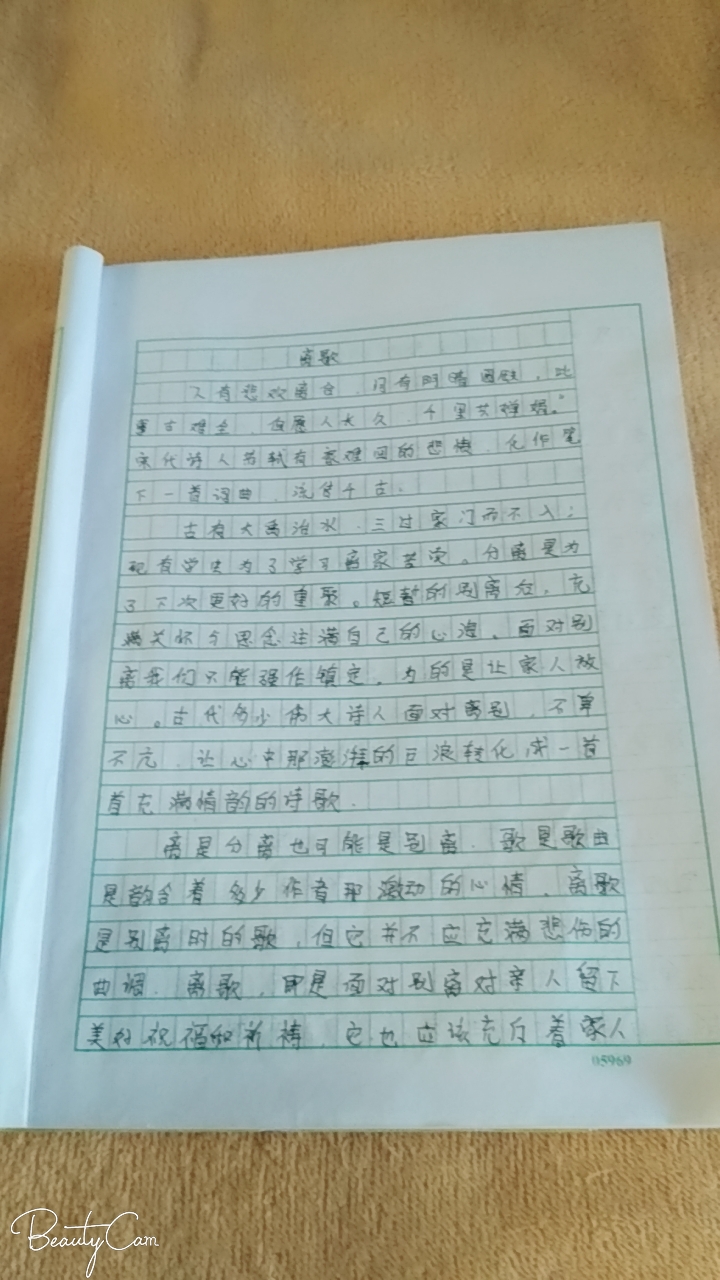 离歌
人有悲欢离合,月有阴晴圆缺,此
事古难全,但愿人长久,千里共婵娟。"
宋代诗人苏轼有家难回的悲愤,化作笔
下一首词曲,流传千古.
古有大禹治水,三过家门而不入;
现有学生为了学习离家苦读。分离是为
了下次更好的重聚。短暂的别离后,充
满关怀与思念注满自己的心海,面对别
离我们只能强作镇定,为的是让家人放
心。古代多少伟大诗人面对离别,不卑
不亢,让心中那澎湃的巨浪转化成一首
首充满情韵的诗歌.
离是分离也可能是别离.歌是歌曲
是韵含着多少作者那激动的心情.离歌
是别离时的歌,但它并不应充满悲伤的
曲调.离歌,即是面对别离对亲人留下
美好祝福和祈祷,它也应该充斥着家人
05969
BeautyCam